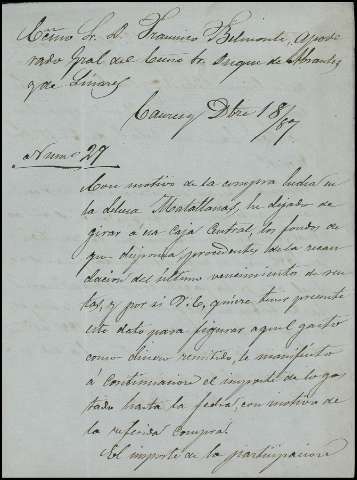 Excmo Sr. D. Francisco Belmonte, Apode
rado Gral del Excmo Sr. Duque de Abrantes
y de Linares
Dbre 18/87
Num.º 27
Con motivo de la compra hecha en
la dehesa Matallanas, he dejado de
girar a esa Caja Central, los fondos de
que disponia procedentes de la recau
dacion del ultimo vencimiento de ren
tas, y por si V.E. quiere tener presente
este dato para figurar aquel gasto
como dinero remitido, le manifiesto
á continuacion el importe de lo gas
tado hasta la fecha, con motivo de
la referida compra.
El importe de la participacion